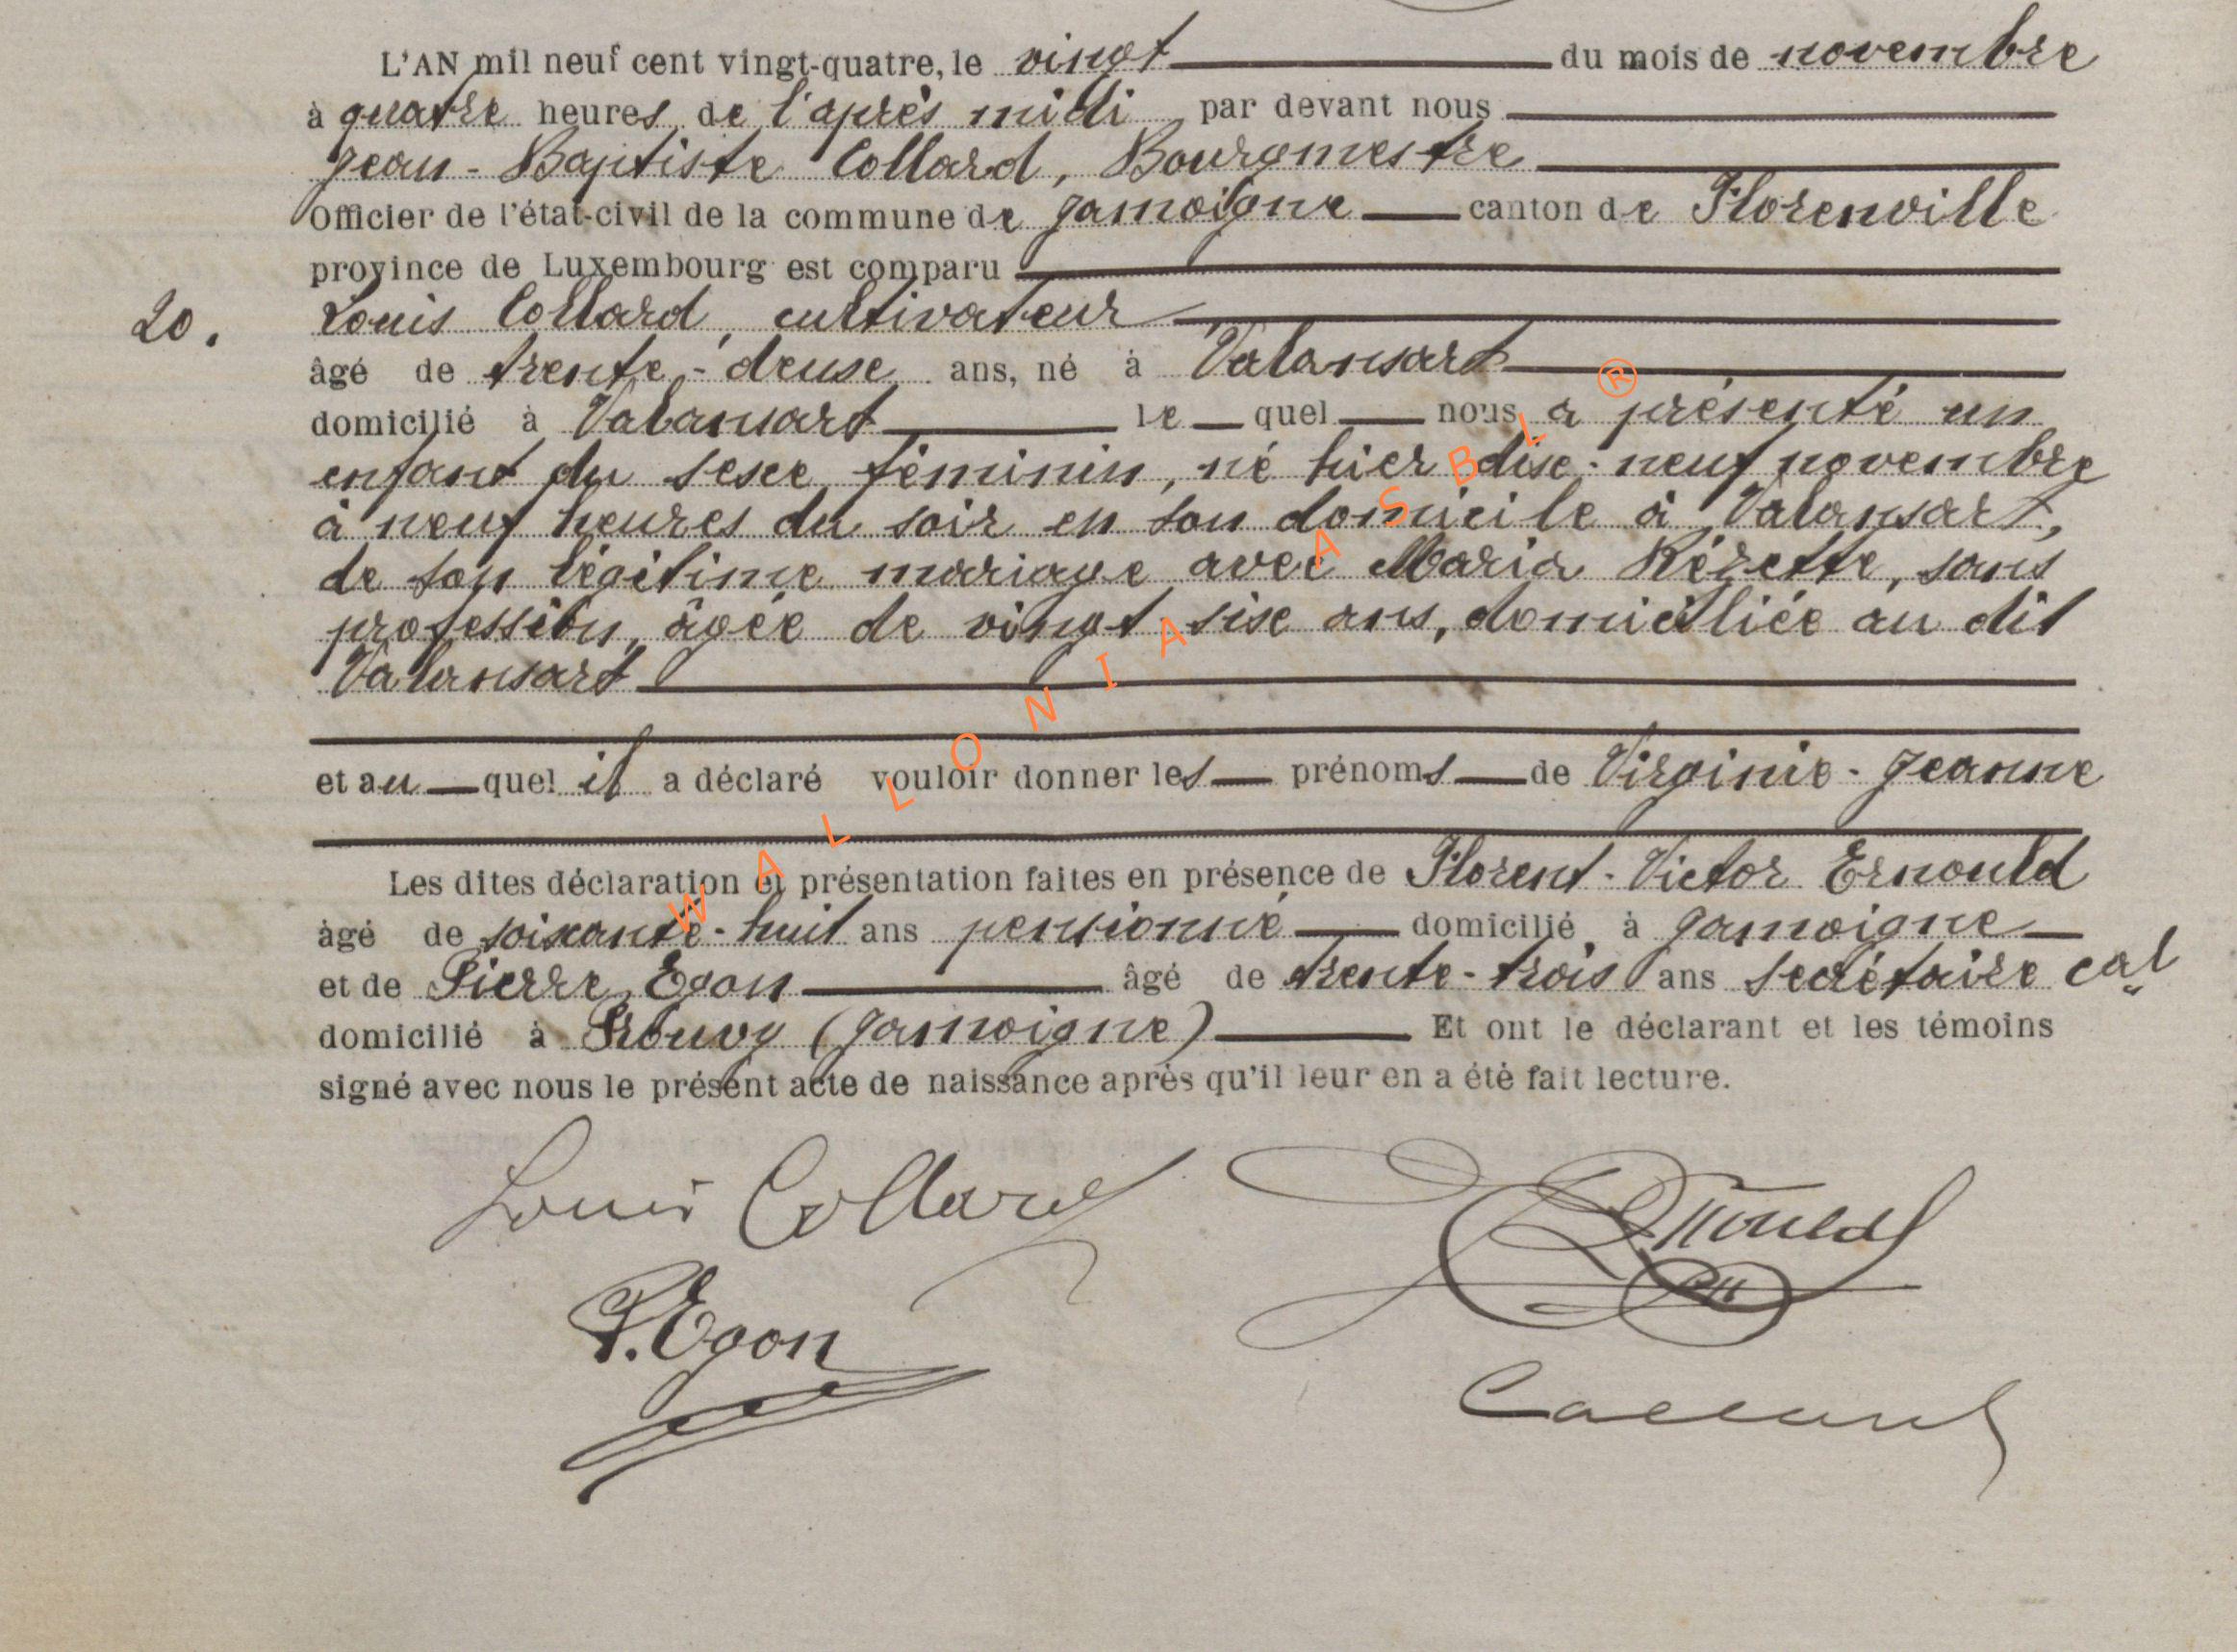 L'AN mil neuf cent vingt-quatre, le vingt du mois de novembre
à quatre heures de l'après midi par devant nous
Jean-Baptiste Collard, Bourgmestre
Officier de l'état-civil de la commune de Jamoigne canton de Florenville
province de Luxembourg est comparu
20. Louis Collard, cultivateur
âgé de trente-deux ans, né à Valansart
domicilié à Valansart le quel nous a présenté un
enfant du sexe féminin, né hier dix-neuf novembre
à neuf heures du soir en son domicile à Valansart,
de son légitime mariage avec Maria Rézette, sans
profession, âgée de vingt six ans, domiciliée au dit
Valansart
et au quel il a déclaré vouloir donner les prénoms de Virginie-Jeanne
Les dites déclaration et présentation faites en présence de Florent-Victor Ernould
âgé de soixante-huit ans pensionné domicilié à Jamoigne
et de Pierre Egon âgé de trente-trois ans secrétaire cal
domicilié à Prouvy (Jamoigne) Et ont le déclarant et les témoins
signé avec nous le présent acte de naissance après qu'il leur en a été fait lecture.
Louis Collard
Ernould
P. Egon
Collard
WALLONIA ASBL ®